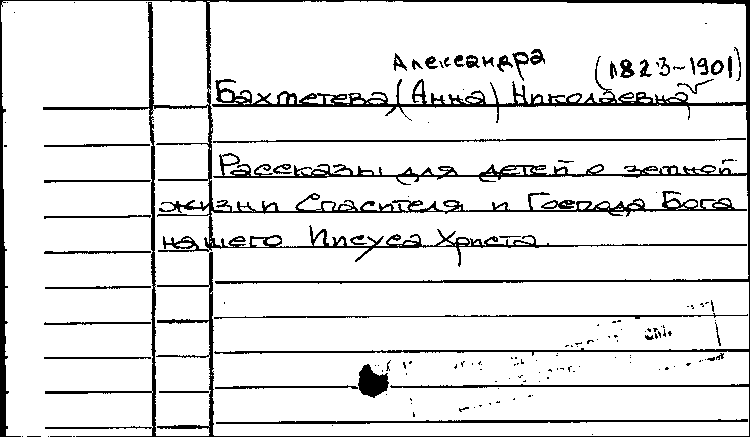 Александра
(1823-1901)
Бахметева, (Анна) Николаевна
Рассказы для детей о земной
жизни Спасителя и Господа Бога
нашего Иисуса Христа.